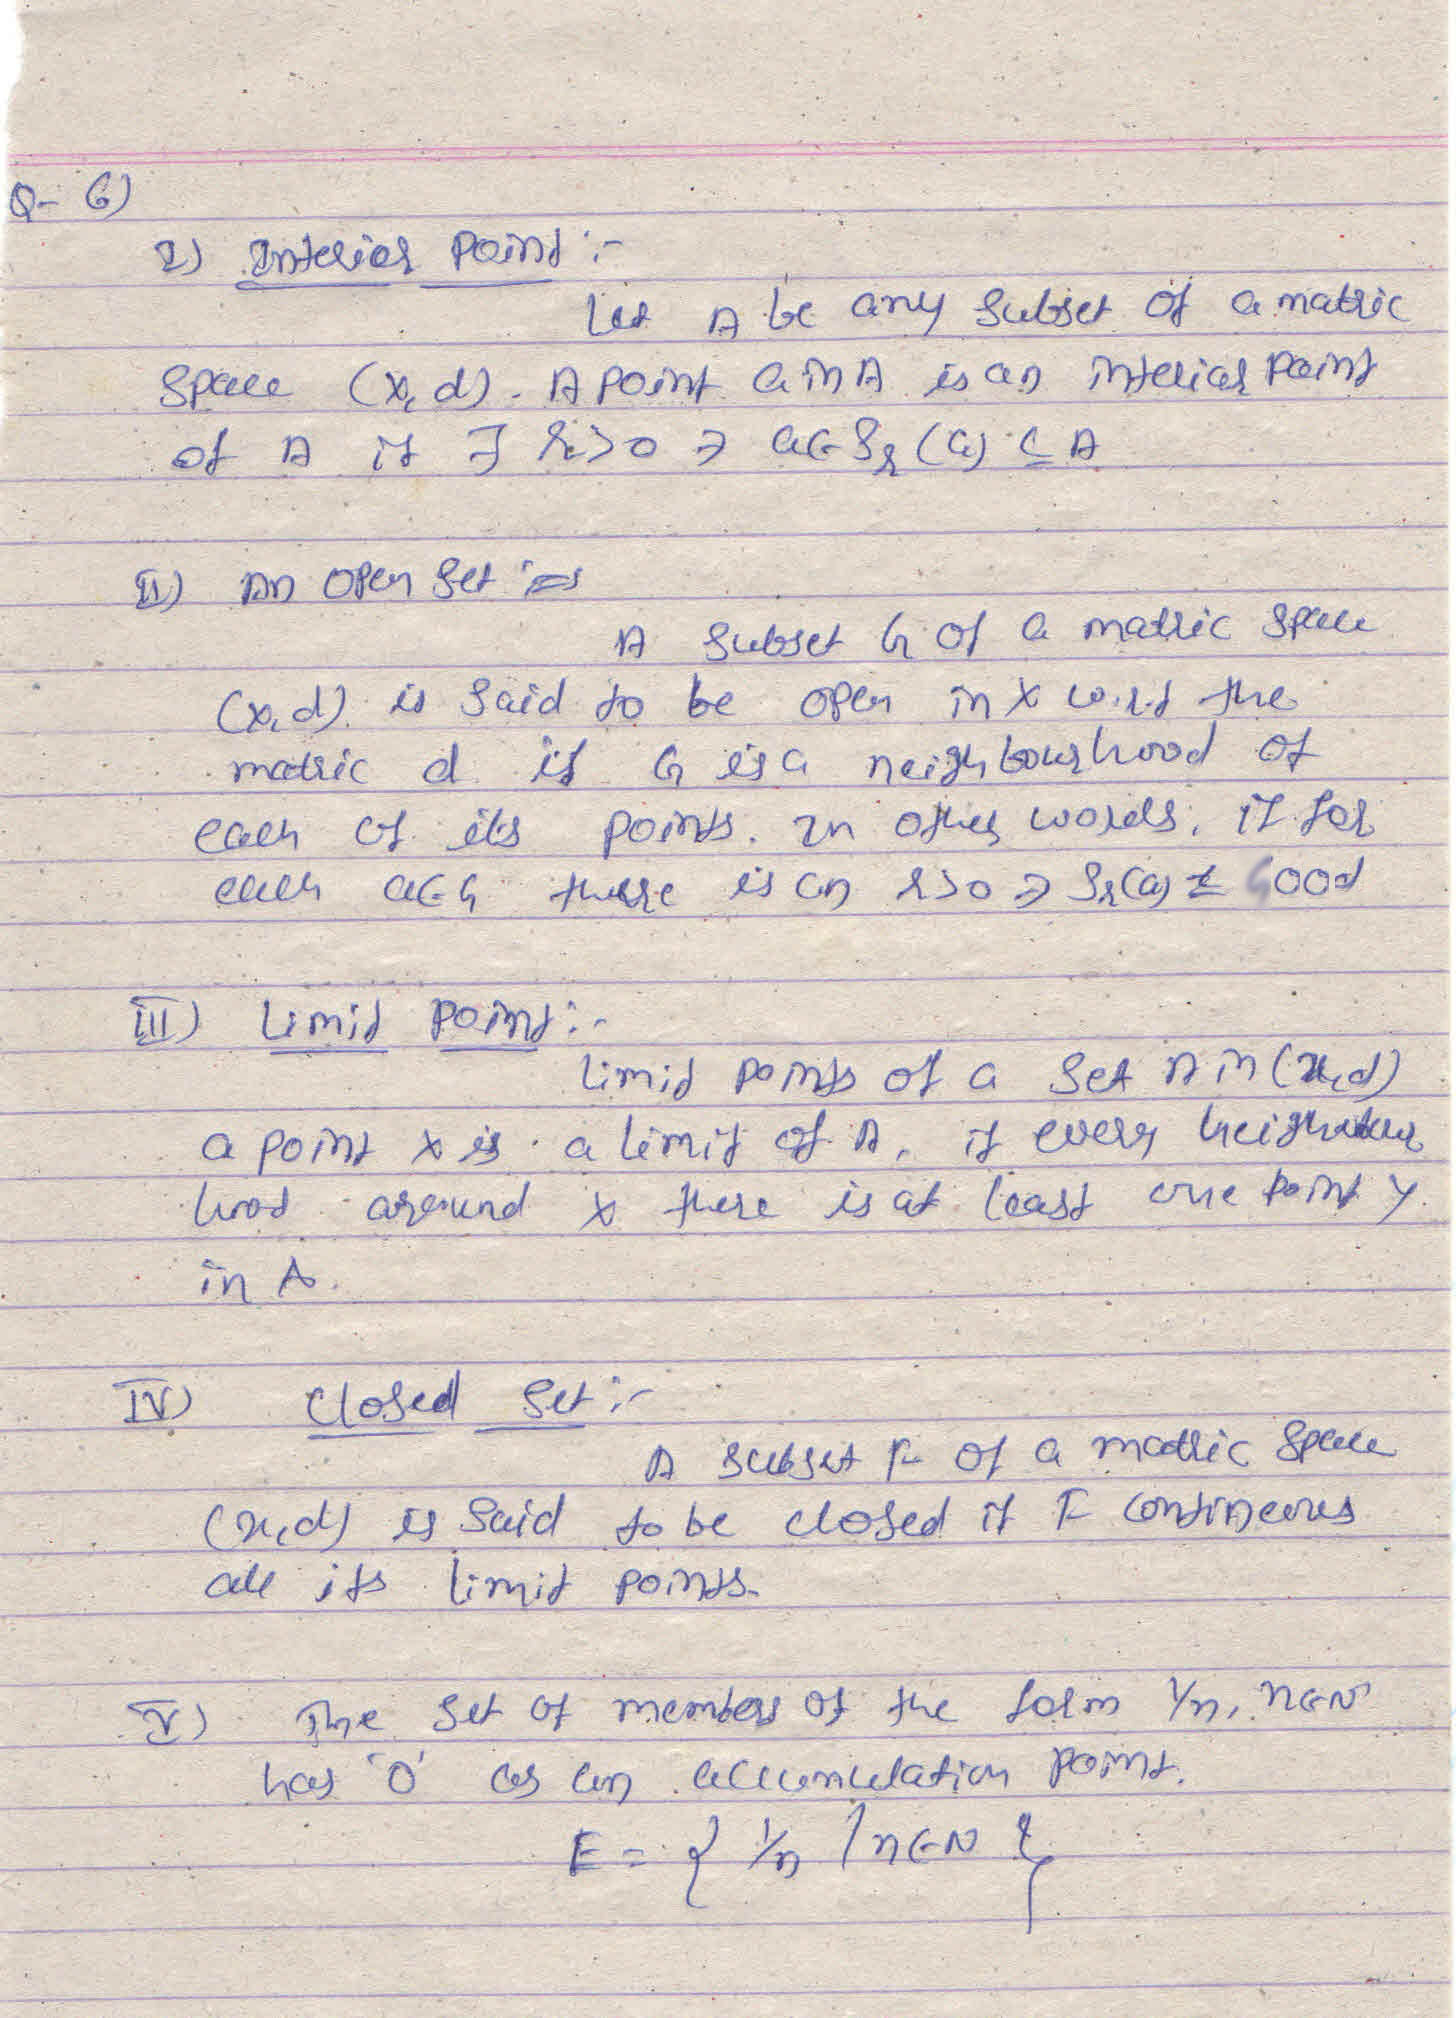 Q- 6)
I) Interior Point :-
Let A be any subset of a matric
space (x, d). A point a in A is an interior point
of A if ∃ r>0 ∋ a∈Sr(a) ⊆ A
II) An open set :=
A subset G of a matric space
(x, d). is said to be open in X w.r.t the
matric d if G is a neighbourhood of
each of its points. In other words, if for
each a∈G there is an r>0 ∋ Sr(a) ⊆ Good
III) Limit point :-
limit points of a set A in (x, d)
a point x is a limit of A, if every neighbour
hood around x there is at least one point y
in A.
IV) Closed Set :-
A subset F of a matric space
(x, d) is said to be closed if F
all its limit points.
V) The set of members of the form 1/n, n∈N
has '0' as an accumulation point.
E = { 1/n / n∈N }